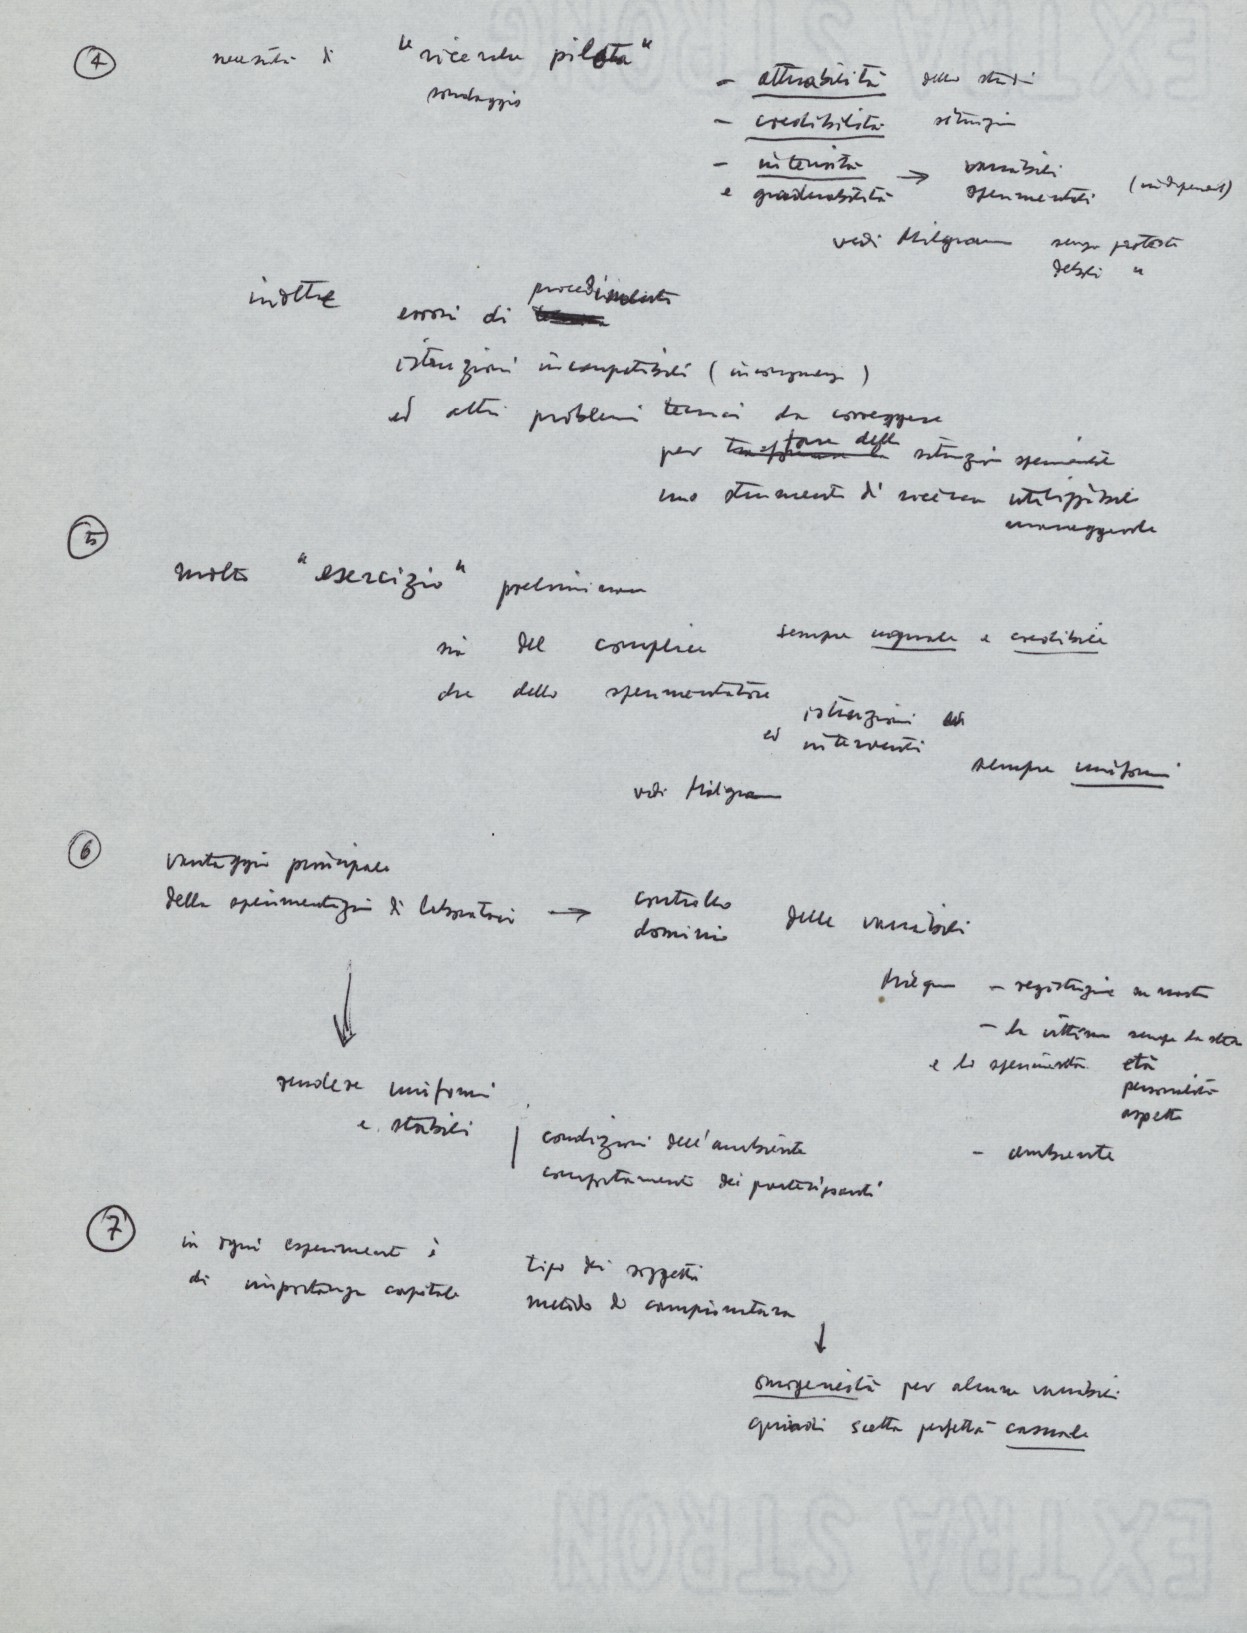 4 necessità di "ricerche pilota"
sondaggio
- attuabilità dello studio
- credibilità situazioni
- intensità → variabili
e graduabilità sperimentali (indipendenti)
vedi Milgram senza proteste
deboli "
inoltre errori di procedimento
istruzioni incompatibili (incongruenze)
ed altri problemi tecnici da correggere
per fare della situazione sperimentale
uno strumento di ricerca utilizzabile
maneggevole
5
molto "esercizio" preliminare
sia del complice sempre uguale e credibile
che dello sperimentatore
istruzioni
ed interventi
sempre uniformi
vedi Milgram
6
vantaggio principale
della sperimentazione di laboratorio → controllo
dominio delle variabili
Milgram - registrazione su nastro
- la vittima sempre la stessa
e lo sperimentat. età
personalità
aspetto
- ambiente
rendere uniformi
e stabili
condizioni dell'ambiente
comportamenti dei partecipanti
7
in ogni esperimento è
di importanza capitale
tipo dei soggetti
metodo di campionatura
↓
omogeneità per alcune variabili
quindi scelta perfett. casuale
EXTRA STRONG
EXTRA STRON